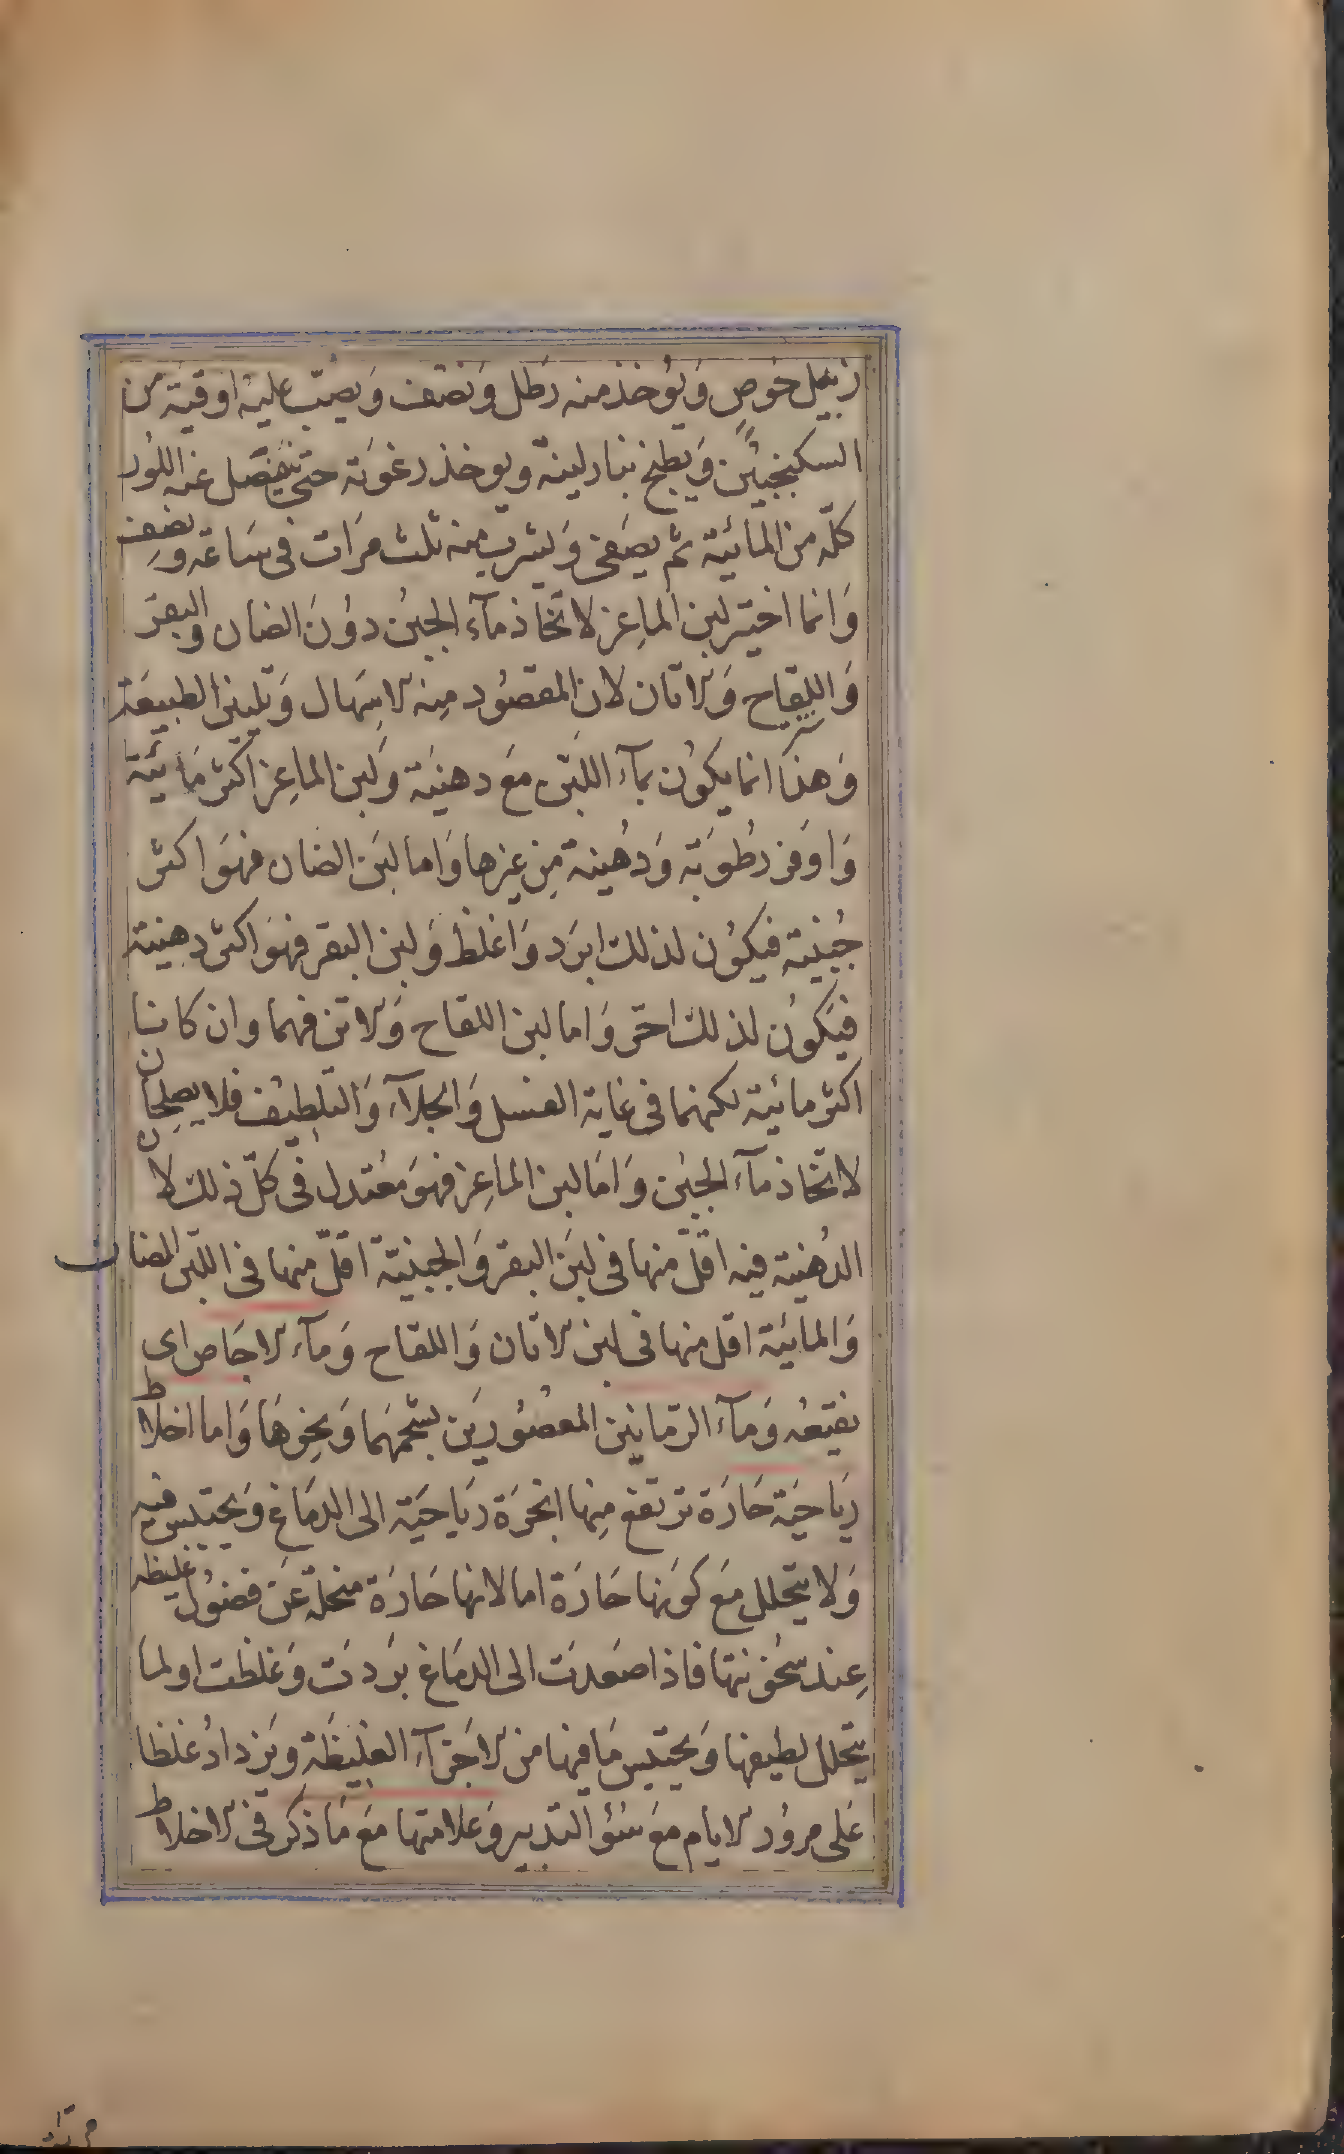 زنبيل خوص ويوخذ منه رطل ونصف ويصب عليه اوقية من
السكنجبين ويطبخ بنار لينة ويوخذ رغوته حتى ينفصل عنه اللور
كله من المائية ثم يصفى ويشرب منه ثلث مرات فى ساعة ونصف
وانما اختير لبن الماعز لاتخاذ مآء الجبن دون الضان والبقر
واللقاح والاتان لان المقصود منه الاسهال وتليين الطبيعة
وهذا انما يكون بمآء اللبن مع دهنية ولبن الماعز اكثر مائية
واوفر رطوبة ودهنية من غيرها واما لبن الضان فهو اكثر
جبنية فيكون لذلك ابرد واغلظ ولبن البقر فهو اكثر دهنية
فيكون لذلك احر واما لبن اللقاح والاتن فهما وان كانتا
اكثر مائية لكنهما فى غاية الغسل والجلآء والتلطيف فلا يصلحان
لاتخاذ مآء الجبن واما لبن الماعز فهو معتدل فى كل ذلك لان
الدهنية فيه اقل منها فى لبن البقر والجبنية اقل منها فى اللبن الضان
والمائية اقل منها فى لبن الاتان واللقاح ومآء الاجاص اى
نقيعه ومآء الرمانين المعصورين بشحمهما ونحوها واما اخلاط
رياحية حارة ترتفع منها ابخرة رياحية الى الدماغ ويحتبس فيه
ولا يتحلل مع كونها حارة اما لانها حارة منحلة عن فضول غليظة
عند سخونتها فاذا صعدت الى الدماغ بردت وغلظت او لما
يتحلل لطيفها ويحتبس ما فيها من الاجزآء الغليظة ويزداد غلظا
على مرور الايام مع سؤ التدبير وعلامتها مع ما ذكر فى الاخلاط